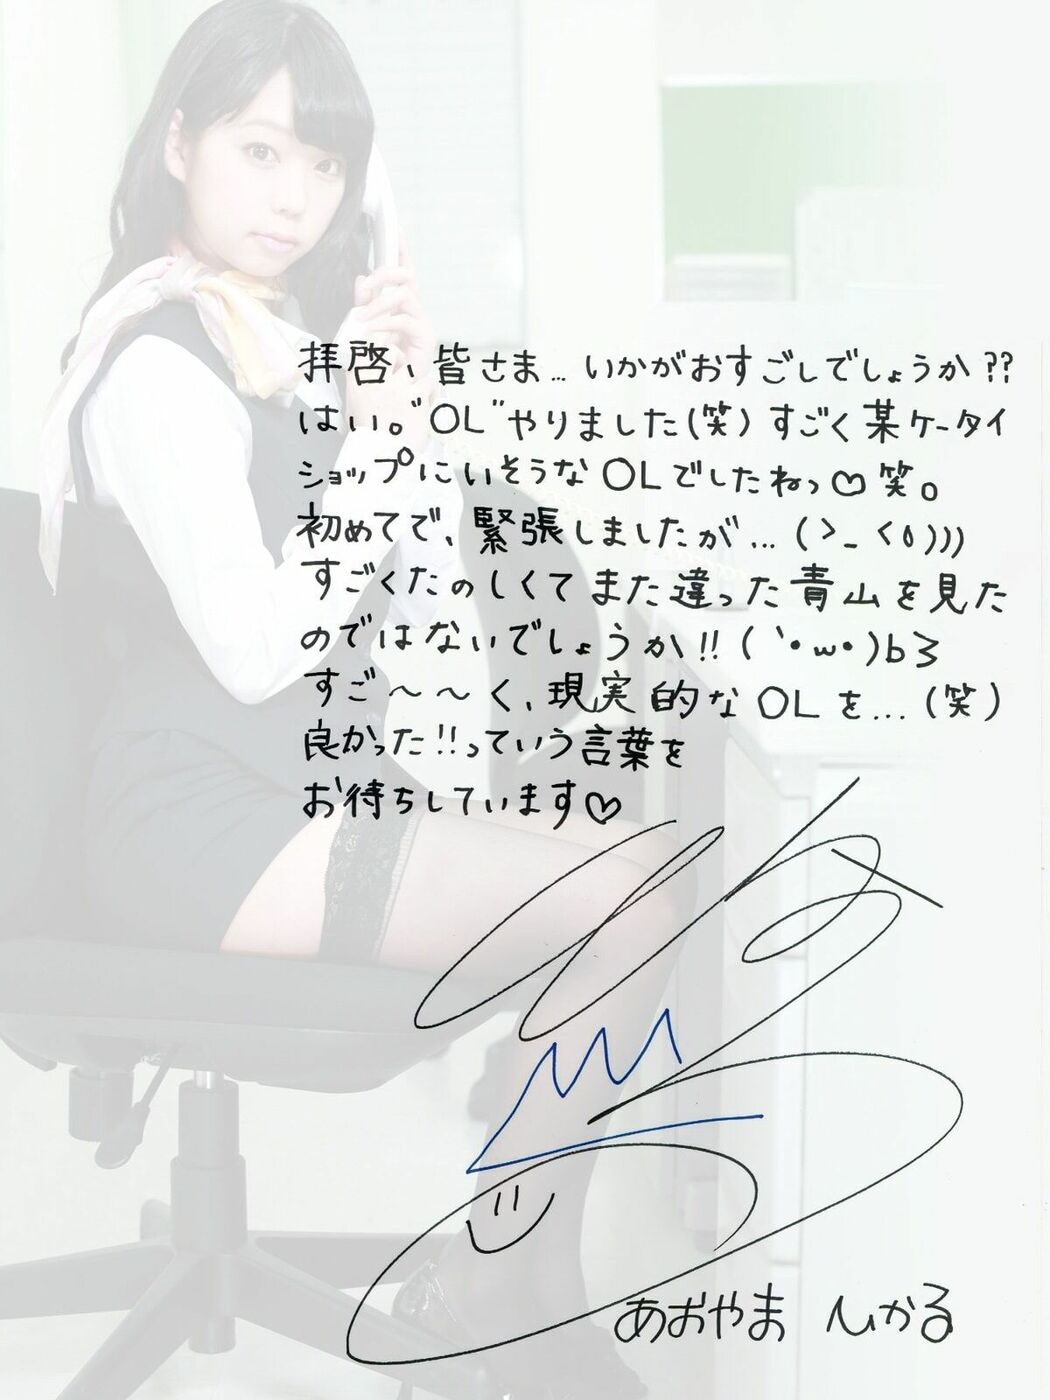 拝啓、皆さま…いかがおすごしでしょうか??
はい。"OL"やりました(笑)すごく某ケータイ
ショップにいそうなOLでしたねっ♡笑。
初めてで、緊張しましたが…(>_<。)))
すごくたのしくてまた違った青山を見た
のではないでしょうか!!(`・ω・)b3
すご〜〜く、現実的なOLを…(笑)
良かった!!っていう言葉を
お待ちしています♡
あおやま ひかる